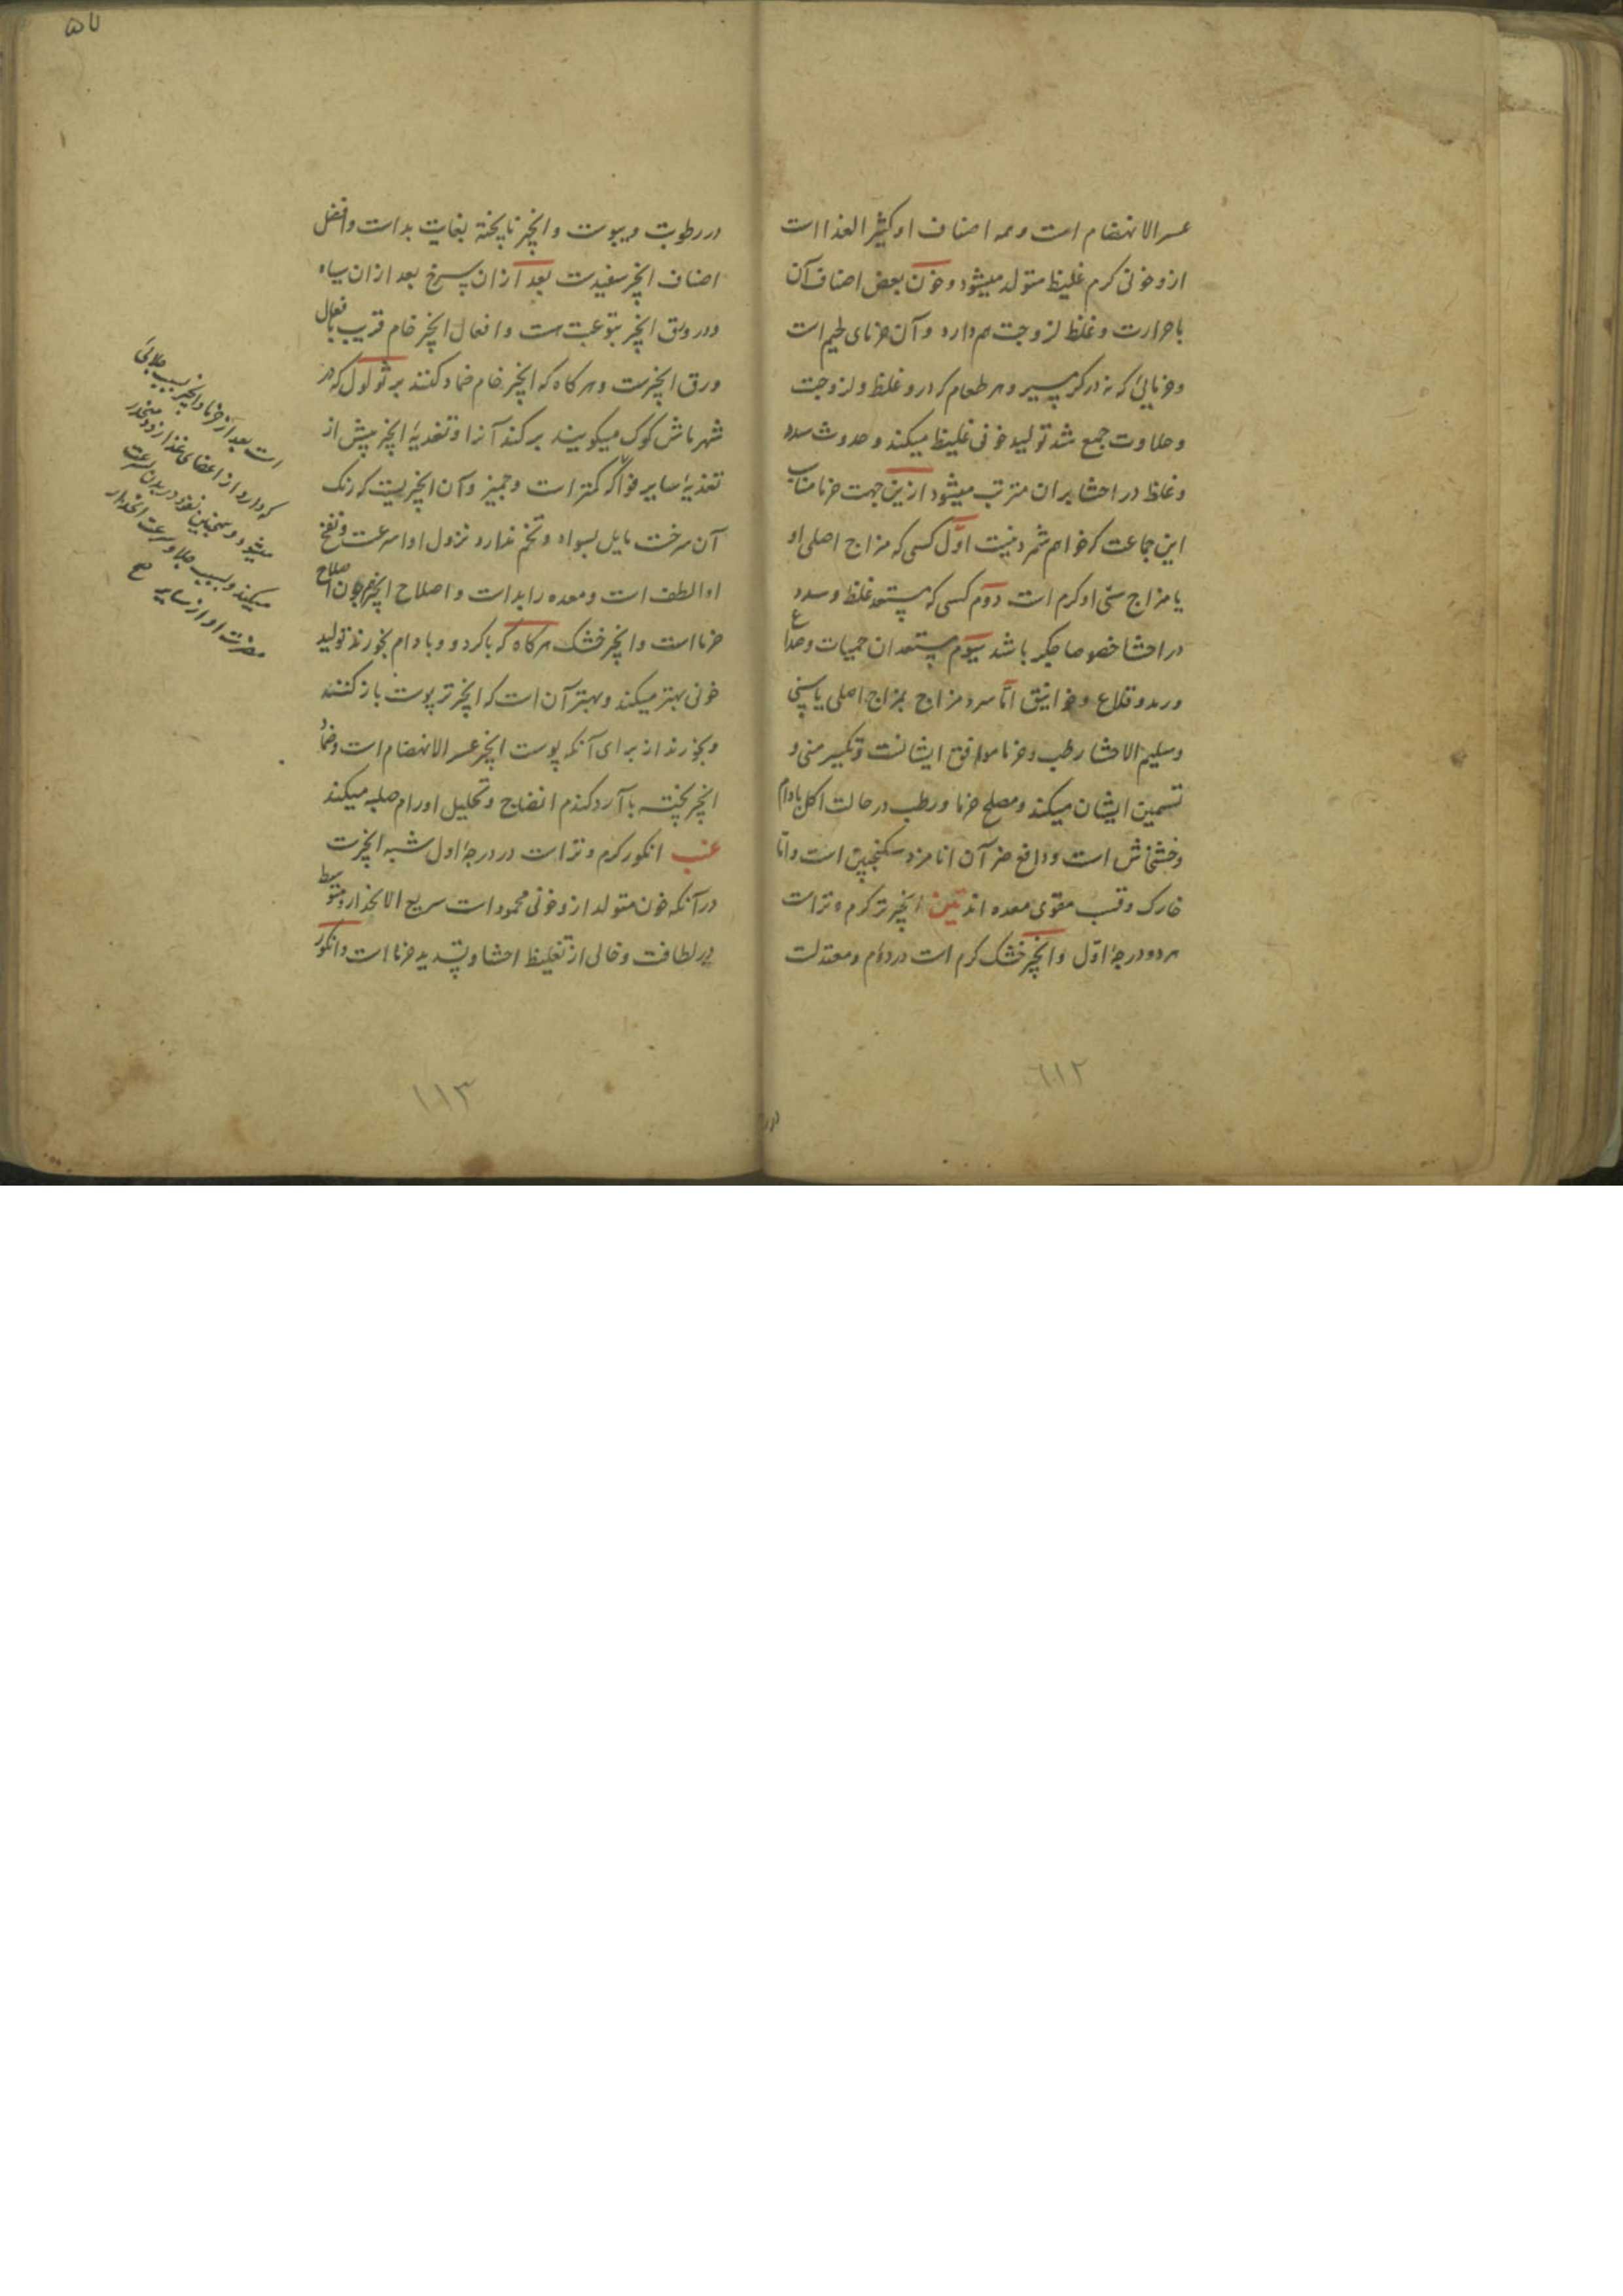 عسر الانهضام است و همه اصناف او کثیر الغذا است
ازو خونی کرم غلیظ متولد میشود و خون بعض اصناف آن
با حرارت و غلظ لزوجت هم دارد و آن خرمای لحیم است
و خرمایی که نه در کرمسیر و هر طعام که درو غلظ و لزوجت
و حلاوت جمع شد تولید خونی غلیظ میکند و حدوث سدد
و غلظ در احشا بران مترتب میشود ازین جهت خرما مناسب
این جماعت که خواهم شمرد نیست اوّل کسی که مزاج اصلی او
یا مزاج سنّی او کرم است دوّم کسی که مستعد غلظ و سدد
در احشا خصوصا جکر باشد سیوّم مستعدان حمیات و صداع
و رمد و قلاع و خوانیق امّا سرد مزاج بمزاج اصلی یا سنّی
و سلیم الاحشا رطب و خرما موافق ایشانست و تکثیر منی و
تسمین ایشان میکند و مصلح خرما و رطب در حالت اکل بادام
و خشخاش است و دافع ضر آن انار مز و سکنجبین است و امّا
خارک و قسب مقوی معده اند تین انجیر تر کرم و تر است
هر دو در درجهٔ اوّل و انجیر خشک کرم است در دوّم و معتدلست
در
۱۱۲
۵۷
در رطوبت و یبوست و انجیر ناپخته بغایت بد است و افضل
اصناف انجیر سفیدست بعد ازان سرخ بعد ازان سیاه
و در ورق انجیر یتوعیت هست و افعال انجیر خام قریب بافعال
ورق انجیرست و هر کاه که انجیر خام ضماد کنند بر ثولول که در
شهر ماش کوک میکویند بر کند آنرا و تغذیهٔ انجیر بیش از
تغذیهٔ سایر فواکه کمتر است و جمیز و آن انجیریست که رنک
آن سرخست مایل بسواد و تخم ندارد نزول او اسرعست و نفخ
او الطف است و معده را بد است و اصلاح انجیر همچون اصلاح
خرما است و انجیر خشک هر کاه که با کردو و بادام بخورند تولید
خونی بهتر میکند و بهتر آن است که انجیر تر پوست باز کنند
و بخورند از برای آنکه پوست انجیر عسر الانهضام است و ضماد
انجیر پخته با آرد کندم انضاج و تحلیل اورام صلبه میکند
عنب انکور کرم و تر است در درجهٔ اول شبه انجیرست
در آنکه خون متولد ازو خونی محمود است سریع الانحدار و متوسط
در لطافت و خالی از تغلیظ احشا و تسدید خرما است و انکور
است بعد از خرما و انجیر بسبب جلائی
که دارد و از اعضای غذا زود منحدر
میشود و همچنین نفوذ در بدن بسرعت
میکند و بسبب جلا و سرعت انحدار
مضرت او از سایر صح
۱۱۳